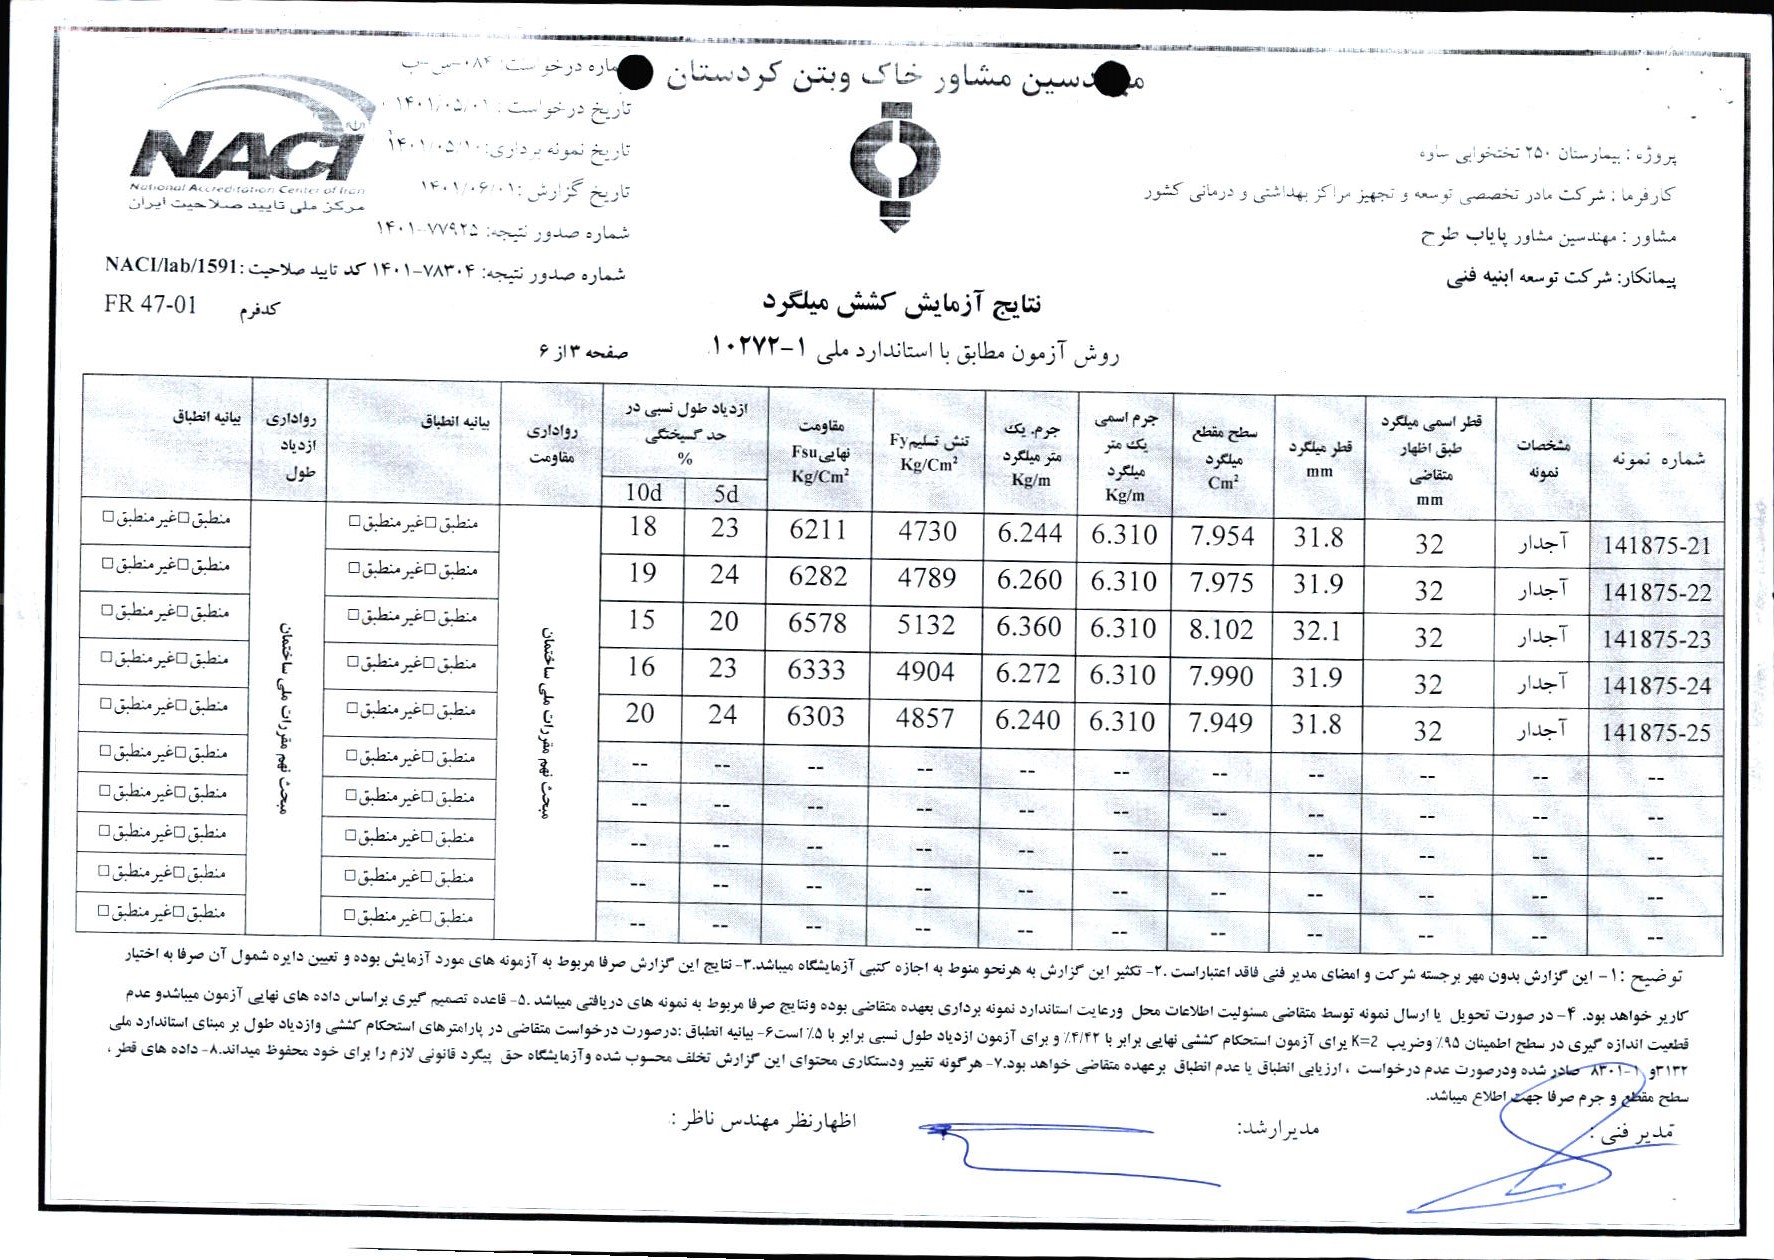 مهندسین مشاور خاک وبتن کردستان
شماره درخواست: ۰۸۴-س-ب
تاریخ درخواست : ۱۴۰۱/۰۵/۰۱
تاریخ نمونه برداری: ۱۴۰۱/۰۵/۱۰
تاریخ گزارش : ۱۴۰۱/۰۶/۰۱
شماره صدور نتیجه: ۷۷۹۲۵-۱۴۰۱
شماره صدور نتیجه: ۷۸۳۰۴-۱۴۰۱ کد تایید صلاحیت :NACI/lab/1591
کدفرم FR 47-01
NACI
National Accreditation Center of Iran
مرکز ملی تایید صلاحیت ایران
پروژه : بیمارستان ۲۵۰ تختخوابی ساوه
کارفرما : شرکت مادر تخصصی توسعه و تجهیز مراکز بهداشتی و درمانی کشور
مشاور : مهندسین مشاور پایاب طرح
پیمانکار: شرکت توسعه ابنیه فنی
نتایج آزمایش کشش میلگرد
روش آزمون مطابق با استاندارد ملی ۱-۱۰۲۷۲
صفحه ۳ از ۶
شماره نمونه | مشخصات نمونه | قطر اسمی میلگرد طبق اظهار متقاضی mm | قطر میلگرد mm | سطح مقطع میلگرد Cm² | جرم اسمی یک متر میلگرد Kg/m | جرم. یک متر میلگرد Kg/m | تنش تسلیم Fy Kg/Cm² | مقاومت نهایی Fsu Kg/Cm² | ازدیاد طول نسبی در حد گسیختگی % 5d | 10d | رواداری مقاومت | بیانیه انطباق | رواداری ازدیاد طول | بیانیه انطباق
141875-21 | آجدار | 32 | 31.8 | 7.954 | 6.310 | 6.244 | 4730 | 6211 | 23 | 18 | منطبق□غیرمنطبق□ | منطبق□غیرمنطبق□
141875-22 | آجدار | 32 | 31.9 | 7.975 | 6.310 | 6.260 | 4789 | 6282 | 24 | 19 | منطبق□غیرمنطبق□ | منطبق□غیرمنطبق□
141875-23 | آجدار | 32 | 32.1 | 8.102 | 6.310 | 6.360 | 5132 | 6578 | 20 | 15 | منطبق□غیرمنطبق□ | منطبق□غیرمنطبق□
141875-24 | آجدار | 32 | 31.9 | 7.990 | 6.310 | 6.272 | 4904 | 6333 | 23 | 16 | منطبق□غیرمنطبق□ | منطبق□غیرمنطبق□
141875-25 | آجدار | 32 | 31.8 | 7.949 | 6.310 | 6.240 | 4857 | 6303 | 24 | 20 | منطبق□غیرمنطبق□ | منطبق□غیرمنطبق□
-- | -- | -- | -- | -- | -- | -- | -- | -- | -- | -- | منطبق□غیرمنطبق□ | منطبق□غیرمنطبق□
-- | -- | -- | -- | -- | -- | -- | -- | -- | -- | -- | منطبق□غیرمنطبق□ | منطبق□غیرمنطبق□
-- | -- | -- | -- | -- | -- | -- | -- | -- | -- | -- | منطبق□غیرمنطبق□ | منطبق□غیرمنطبق□
-- | -- | -- | -- | -- | -- | -- | -- | -- | -- | -- | منطبق□غیرمنطبق□ | منطبق□غیرمنطبق□
-- | -- | -- | -- | -- | -- | -- | -- | -- | -- | -- | منطبق□غیرمنطبق□ | منطبق□غیرمنطبق□
مبحث نهم مقررات ملی ساختمان
مبحث نهم مقررات ملی ساختمان
توضیح :۱- این گزارش بدون مهر برجسته شرکت و امضای مدیر فنی فاقد اعتباراست .۲- تکثیر این گزارش به هرنحو منوط به اجازه کتبی آزمایشگاه میباشد.۳- نتایج این گزارش صرفا مربوط به آزمونه های مورد آزمایش بوده و تعیین دایره شمول آن صرفا به اختیار
کاربر خواهد بود. ۴- در صورت تحویل یا ارسال نمونه توسط متقاضی مسئولیت اطلاعات محل ورعایت استاندارد نمونه برداری بعهده متقاضی بوده ونتایج صرفا مربوط به نمونه های دریافتی میباشد .۵- قاعده تصمیم گیری براساس داده های نهایی آزمون میباشدو عدم
قطعیت اندازه گیری در سطح اطمینان ۹۵٪ وضریب K=2 برای آزمون استحکام کششی نهایی برابر با ۴/۴۲٪ و برای آزمون ازدیاد طول نسبی برابر با ۵٪ است۶- بیانیه انطباق :درصورت درخواست متقاضی در پارامترهای استحکام کششی وازدیاد طول بر مبنای استاندارد ملی
۳۱۳۲و ۱-۸۳۰۱ صادر شده ودرصورت عدم درخواست ، ارزیابی انطباق یا عدم انطباق برعهده متقاضی خواهد بود.۷- هرگونه تغییر ودستکاری محتوای این گزارش تخلف محسوب شده وآزمایشگاه حق پیگرد قانونی لازم را برای خود محفوظ میداند.۸- داده های قطر ،
سطح مقطع و جرم صرفا جهت اطلاع میباشد.
مدیر فنی :
مدیرارشد:
اظهارنظر مهندس ناظر :